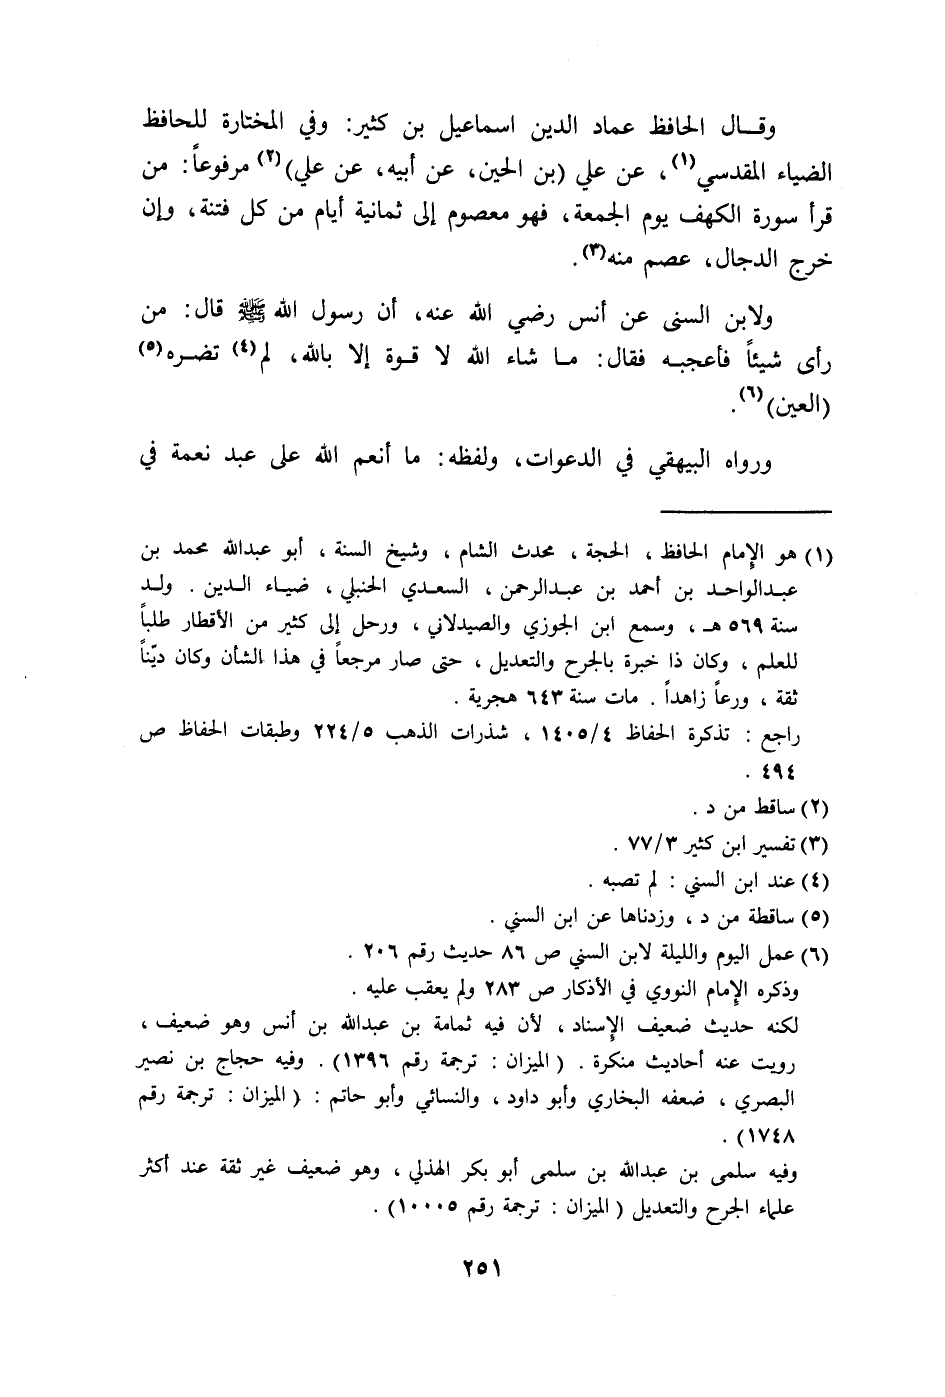 وقـال الحافظ عماد الدين اسماعيل بن كثير: وفي المختارة للحافظ
الضياء المقدسي(١)، عن علي (بن الحين، عن أبيه، عن علي)(٢) مرفوعاً: من
قرأ سورة الكهف يوم الجمعة، فهو معصوم إلى ثمانية أيام من كل فتنة، وإن
خرج الدجال، عصم منه(٣).
ولابن السنى عن أنس رضي الله عنه، أن رسول الله ﷺ قال: من
رأى شيئاً فأعجبـه فقال: مـا شاء الله لا قـوة إلا بالله، لم(٤) تضـره(٥)
(العين)(٦).
ورواه البيهقي في الدعوات، ولفظه: ما أنعم الله على عبد نعمة في
(١) هو الإمام الحافظ ، الحجة ، محدث الشام ، وشيخ السنة ، أبو عبدالله محمد بن
عبـدالواحـد بن أحمد بن عبـدالرحمن ، السعـدي الحنبلي ، ضيـاء الـدين . ولـد
سنة ٥٦٩ هـ ، وسمع ابن الجوزي والصيدلاني ، ورحل إلى كثير من الأقطار طلباً
للعلم ، وكان ذا خبرة بالجرح والتعديل ، حتى صار مرجعاً في هذا الشأن وكان ديّناً
ثقة ، ورعاً زاهداً . مات سنة ٦٤٣ هجرية .
راجع : تذكرة الحفاظ ١٤٠٥/٤ ، شذرات الذهب ٢٢٤/٥ وطبقات الحفاظ ص
٤٩٤ .
(٢) ساقط من د .
(٣) تفسير ابن كثير ٧٧/٣ .
(٤) عند ابن السني : لم تصبه .
(٥) ساقطة من د ، وزدناها عن ابن السني .
(٦) عمل اليوم والليلة لابن السني ص ٨٦ حديث رقم ٢٠٦ .
وذكره الإمام النووي في الأذكار ص ٢٨٣ ولم يعقب عليه .
لكنه حديث ضعيف الإسناد ، لأن فيه ثمامة بن عبدالله بن أنس وهو ضعيف ،
رويت عنه أحاديث منكرة . ( الميزان : ترجمة رقم ١٣٩٦) . وفيه حجاج بن نصير
البصري ، ضعفه البخاري وأبو داود ، والنسائي وأبو حاتم : ( الميزان : ترجمة رقم
١٧٤٨) .
وفيه سلمى بن عبدالله بن سلمى أبو بكر الهذلي ، وهو ضعيف غير ثقة عند أكثر
علماء الجرح والتعديل ( الميزان : ترجمة رقم ١٠٠٠٥) .
٢٥١